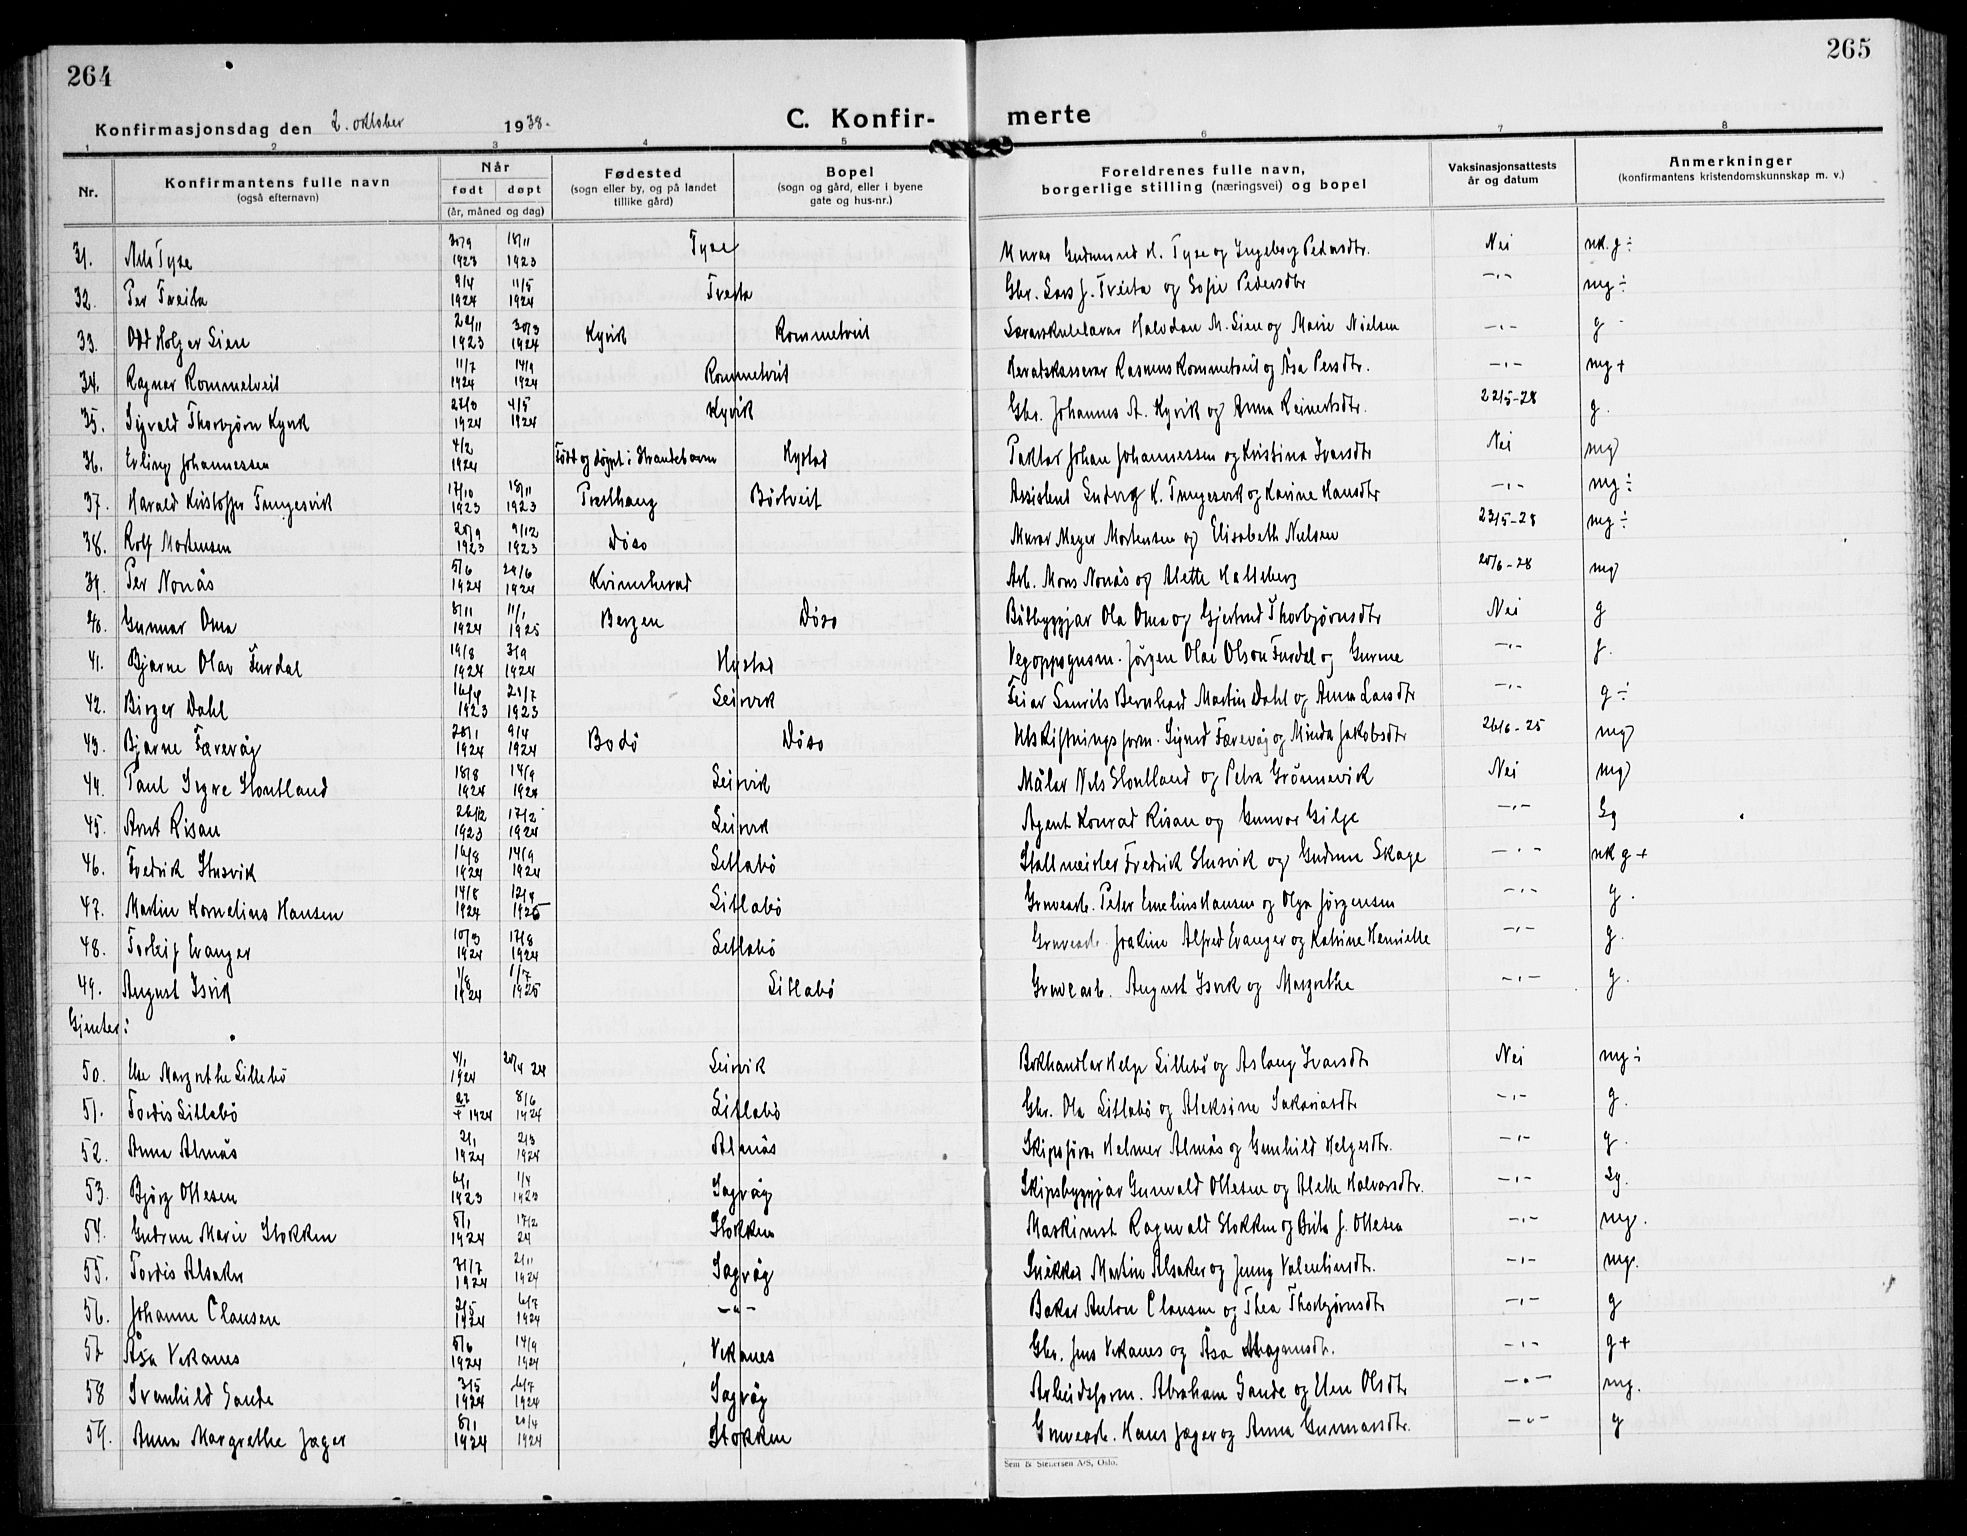 264
265
Konfirmasjonsdag den 2. oktober 1938.
C. Konfir-
merte
1 2 3 4 5 6 7 8
Nr.
Konfirmantens fulle navn
(også efternavn)
Når
født døpt
(år, måned og dag)
Fødested
(sogn eller by, og på landet
tillike gård)
Bopel
(sogn og gård, eller i byene
gate og hus-nr.)
Foreldrenes fulle navn,
borgerlige stilling (næringsvei) og bopel
Vaksinasjonsattests
år og datum
Anmerkninger
(konfirmantens kristendomskunnskap m. v.)
31. Nils Tyse 1923 18/11 1923 Tyse Murar Gudmund H. Tyse og Ingeborg Pedersdtr. Nei nk. g ÷
32. Per Tveita 9/4 1924 11/5 1924 Tveita Gbr. Lars J. Tveita og Sofie Pedersdtr -"- mg ÷
33. Odd Holger Lien 1923 30/3 1924 Kyvik Rommetveit Lærarskulelærar Halvdan M. Lien og Marie Nielsen -"- g
34. Ragnar Rommetveit 11/7 1924 14/9 1924 Rommetveit Heradskasserar Rasmus Rommetveit og Åsa Persdtr. -"- mg +
35. Sigvald Thorbjørn Kyvik 27/3 1924 4/5 1924 Kyvik Gbr. Johannes A. Kyvik og Anna Reinertsdtr. 22/5-28 g.
36. Erling Johannessen 4/2 1924 Født og døypt i Strandebarm Hystad Faktor Johan Johannessen og Kristina Ivarsdtr Nei mg
37. Harald Kristoffer Tungesvik 17/10 1923 18/11 1923 Presthaug Børtveit Assistent Ludvig K. Tungesvik og Karine Hansdtr -"- mg ÷
38. Rolf Mortensen 20/9 1923 9/12 1923 Døso Murar Meyer Mortensen og Elisabeth Nielsen 23/5-28 mg ÷
39. Per Nonås 5/6 1924 29/6 1924 Kvinnherad Arb. Mons Nonås og Alette Halleberg 20/6-28 mg
40. Gunnar Oma 8/11 1924 11/1 1925 Bergen Døso Båtbyggjar Ola Oma og Gjertrud Thorbjørnsdtr Nei g
41. Bjarne Olav Furdal 19/8 1924 3/9 1924 Hystad Vegoppsynsm. Jörgen Olai Olson Furdal og Gurine -"- g.
42. Birger Dahl 1923 1923 Leirvik Feiar Laurits Bernhard Martin Dahl og Anna Larsdtr -"- g ÷
43. Bjarne Færevåg 28/1 1924 9/4 1924 Bodö Döso Utskiftningsform. Sigurd Færevåg og Minda Jakobsdtr 26/6-25 mg
44. Paul Yngve Stautland 18/8 1924 14/9 1924 Leirvik Målar Nels Stautland og Petra Grönnevik Nei mg
45. Arnt Risan 26/12 1923 17/2 1924 Leirvik Agent Konrad Risan og Gunvor Gilje -"- Sg
46. Fredrik Stusvik 16/8 1924 14/9 1924 Litlabö Stallmeister Fredrik Stusvik og Gudrun Skage -"- nk g +
47. Martin Kornelius Hansen 14/8 1924 12/4 1925 Litlabö Gruvearb. Peter Emelius Hansen og Olga Jörgensen -"- g.
48. Torleif Evanger 10/3 1924 17/8 1924 Litlabö Gruvearb. Joakim Alfred Evanger og Katrine Henriette -"- g.
49. August Isvik 1/8 1924 1/7 1925 Litlabö Gruvearb. August Isvik og Margrethe -"- g.
Gjenter:
50. Else Margrethe Lillebö 4/1 1924 20/4 24 Leirvik Bokhandlar Helge Lillebö og Aslaug Ivarsdtr Nei mg ÷
51. Tordis Litlabö 1924 8/6 1924 Litlabö Gbr. Ola Litlabö og Aleksine Sakariasdtr -"- g.
52. Anna Almås 2/1 1924 2/3 1924 Almås Skipsförar Helmer Almås og Gunhild Helgesdtr. -"- g.
53. Bjørg Ottesen 6/1 1923 1/4 1923 Sagvåg Skipsbyggjar Gunvald Ottesen og Alette Halvorsdtr. -"- Sg.
54. Gudrun Marie Stokken 5/1 1924 17/2 24 Stokken Maskinist Ragnvald Stokken og Brita J. Ottesen -"- mg.
55. Tordis Alsaker 31/7 1924 2/11 1924 Sagvåg Snikkar Martin Alsaker og Jenny Valentinsdtr. -"- mg.
56. Johanne Clausen 2/5 1924 6/7 1924 -"- Bakar Anton Clausen og Thea Thorbjørnsdtr -"- g
57 Åsa Vekanes 5/6 1924 14/9 1924 Vekanes Gbr. Jens Vekanes og Åsa -"- g +
58 Svanhild Sande 3/5 1924 6/7 1924 Sagvåg Arbeidsform. Abraham Sande og Elen Olsdtr -"- mg.
59. Anna Margrethe Jager 8/1 1924 20/4 1924 Stokken Gruvearb. Hans Jæger og Anna Gunnarsdtr. -"- g
Sem & Stenersen A/S, Oslo.